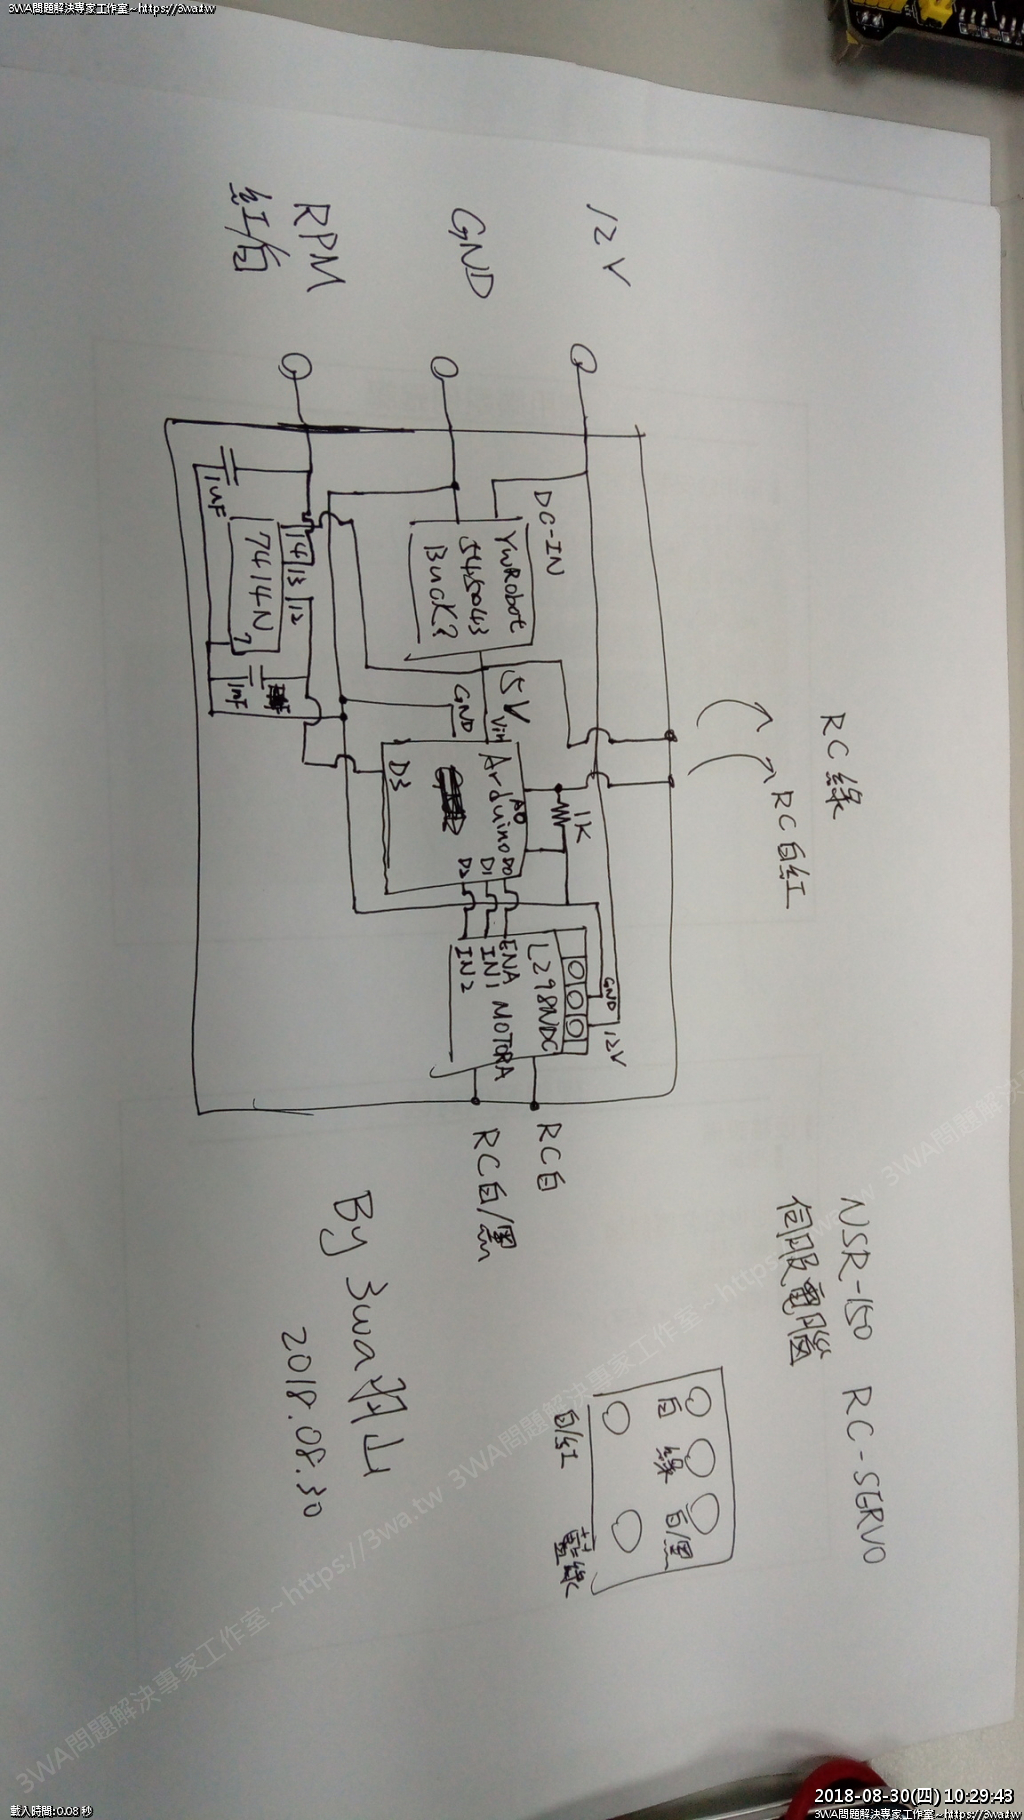 3WA問題解決專家工作室~https://3wa.tw
NSR-150 RC-SERVO
伺服電腦
RC綠
RC白紅
12V
GND
RPM
紅/白
DC-IN
YwRobot
545043
Buck?
5V
GND
Vin
Arduino
A0
D3
D0
D1
D2
1K
1uF
14 13 12
7414N
7
1nF
GND
12V
L298NDC
ENA
IN1
IN2
MOTORA
RC白
RC白/黑
白 綠 白/黑
白/紅 藍綠
By 3wa羽山
2018.08.30
3WA問題解決專家工作室~https://3wa.tw
載入時間:0.08 秒
2018-08-30(四) 10:29:43
3WA問題解決專家工作室~https://3wa.tw